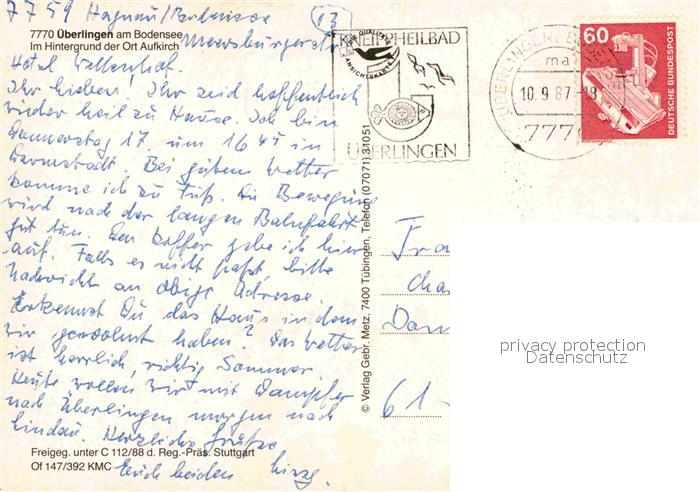 7759 Hagnau/Bodensee
13
7770 Überlingen am Bodensee
Im Hintergrund der Ort Aufkirch
Meersburgerstr
Hotel
Ihr Lieben! Ihr seid hoffentlich
wieder heil zu Hause. Ich bin
Donnerstag 17. um 16 45 in
Darmstadt. Bei gutem Wetter
komme ich zu Fuß. Die Bewegung
wird nach der langen Bahnfahrt
gut tun. Den Koffer gebe ich hier
auf. Falls es nicht paßt, bitte
Nachricht an obige Adresse.
Erkennst Du das Haus in dem
wir gewohnt haben? Das Wetter
ist herrlich, richtig Sommer
Heute wollen wir mit Dampfer
nach Überlingen morgen nach
Lindau. Herzliche Grüße
Euch beiden
Freigeg. unter C 112/88 d. Reg.-Präs. Stuttgart
Of 147/392 KMC
© Verlag Gebr. Metz, 7400 Tübingen, Telefon (07071) 31051
DIE QUALITÄTS
ANSICHTSKARTE
KNEIPPHEILBAD
ÜBERLINGEN
ÜBERLINGEN, BODENSEE
ma
10.9.87-18
7770
60
DEUTSCHE BUNDESPOST
Fra
Dar
61-
privacy protection
Datenschutz